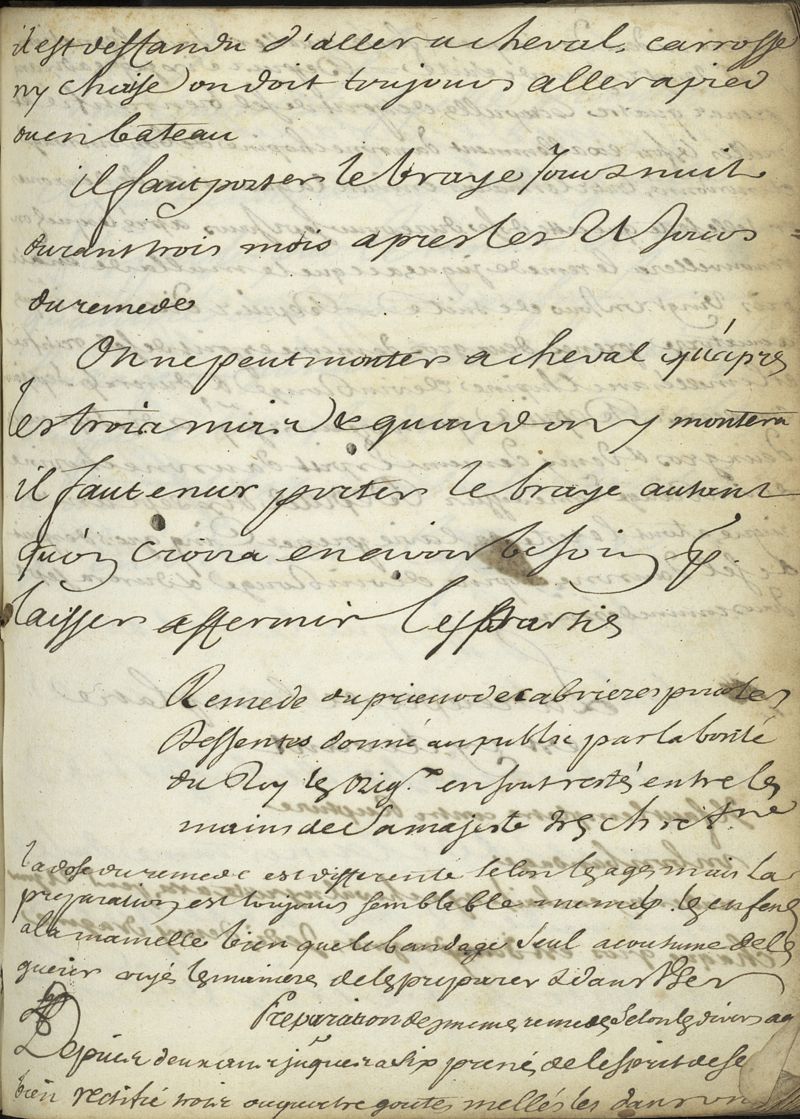 il est deffandu d'aller a cheval, carrosse
ny chaise on doit toujours aller a pied
ou en bateau
il faut porter le braye jour & nuit
durant trois mois apres les 21 jours
du remede
On ne peut monter a cheval qu'apres
les trois mois & quand on y montera
il faut porter le braye autant
qu'on croira en avoir besoin pr.
laisser affermir les parties
Remede du prieur de cabrieres pour les
dessentes donné au public par la bonté
du Roy les orig.x en sont restés entre les
mains de sa majesté tres chret.ne
la dose du remede est differente selon les ages mais la
preparation est toujours semblable mesme pr. les enfens
a la mamelle bien que le bandage seul a coutume de les
guerir voyés la maniere de le preparer & d'en user
Preparation de mesme remede selon les divers ag
Depuis deux ans jusques a six prenés de l'esprit de se
bien rectifié trois ou quatre goutes mellés les dans un